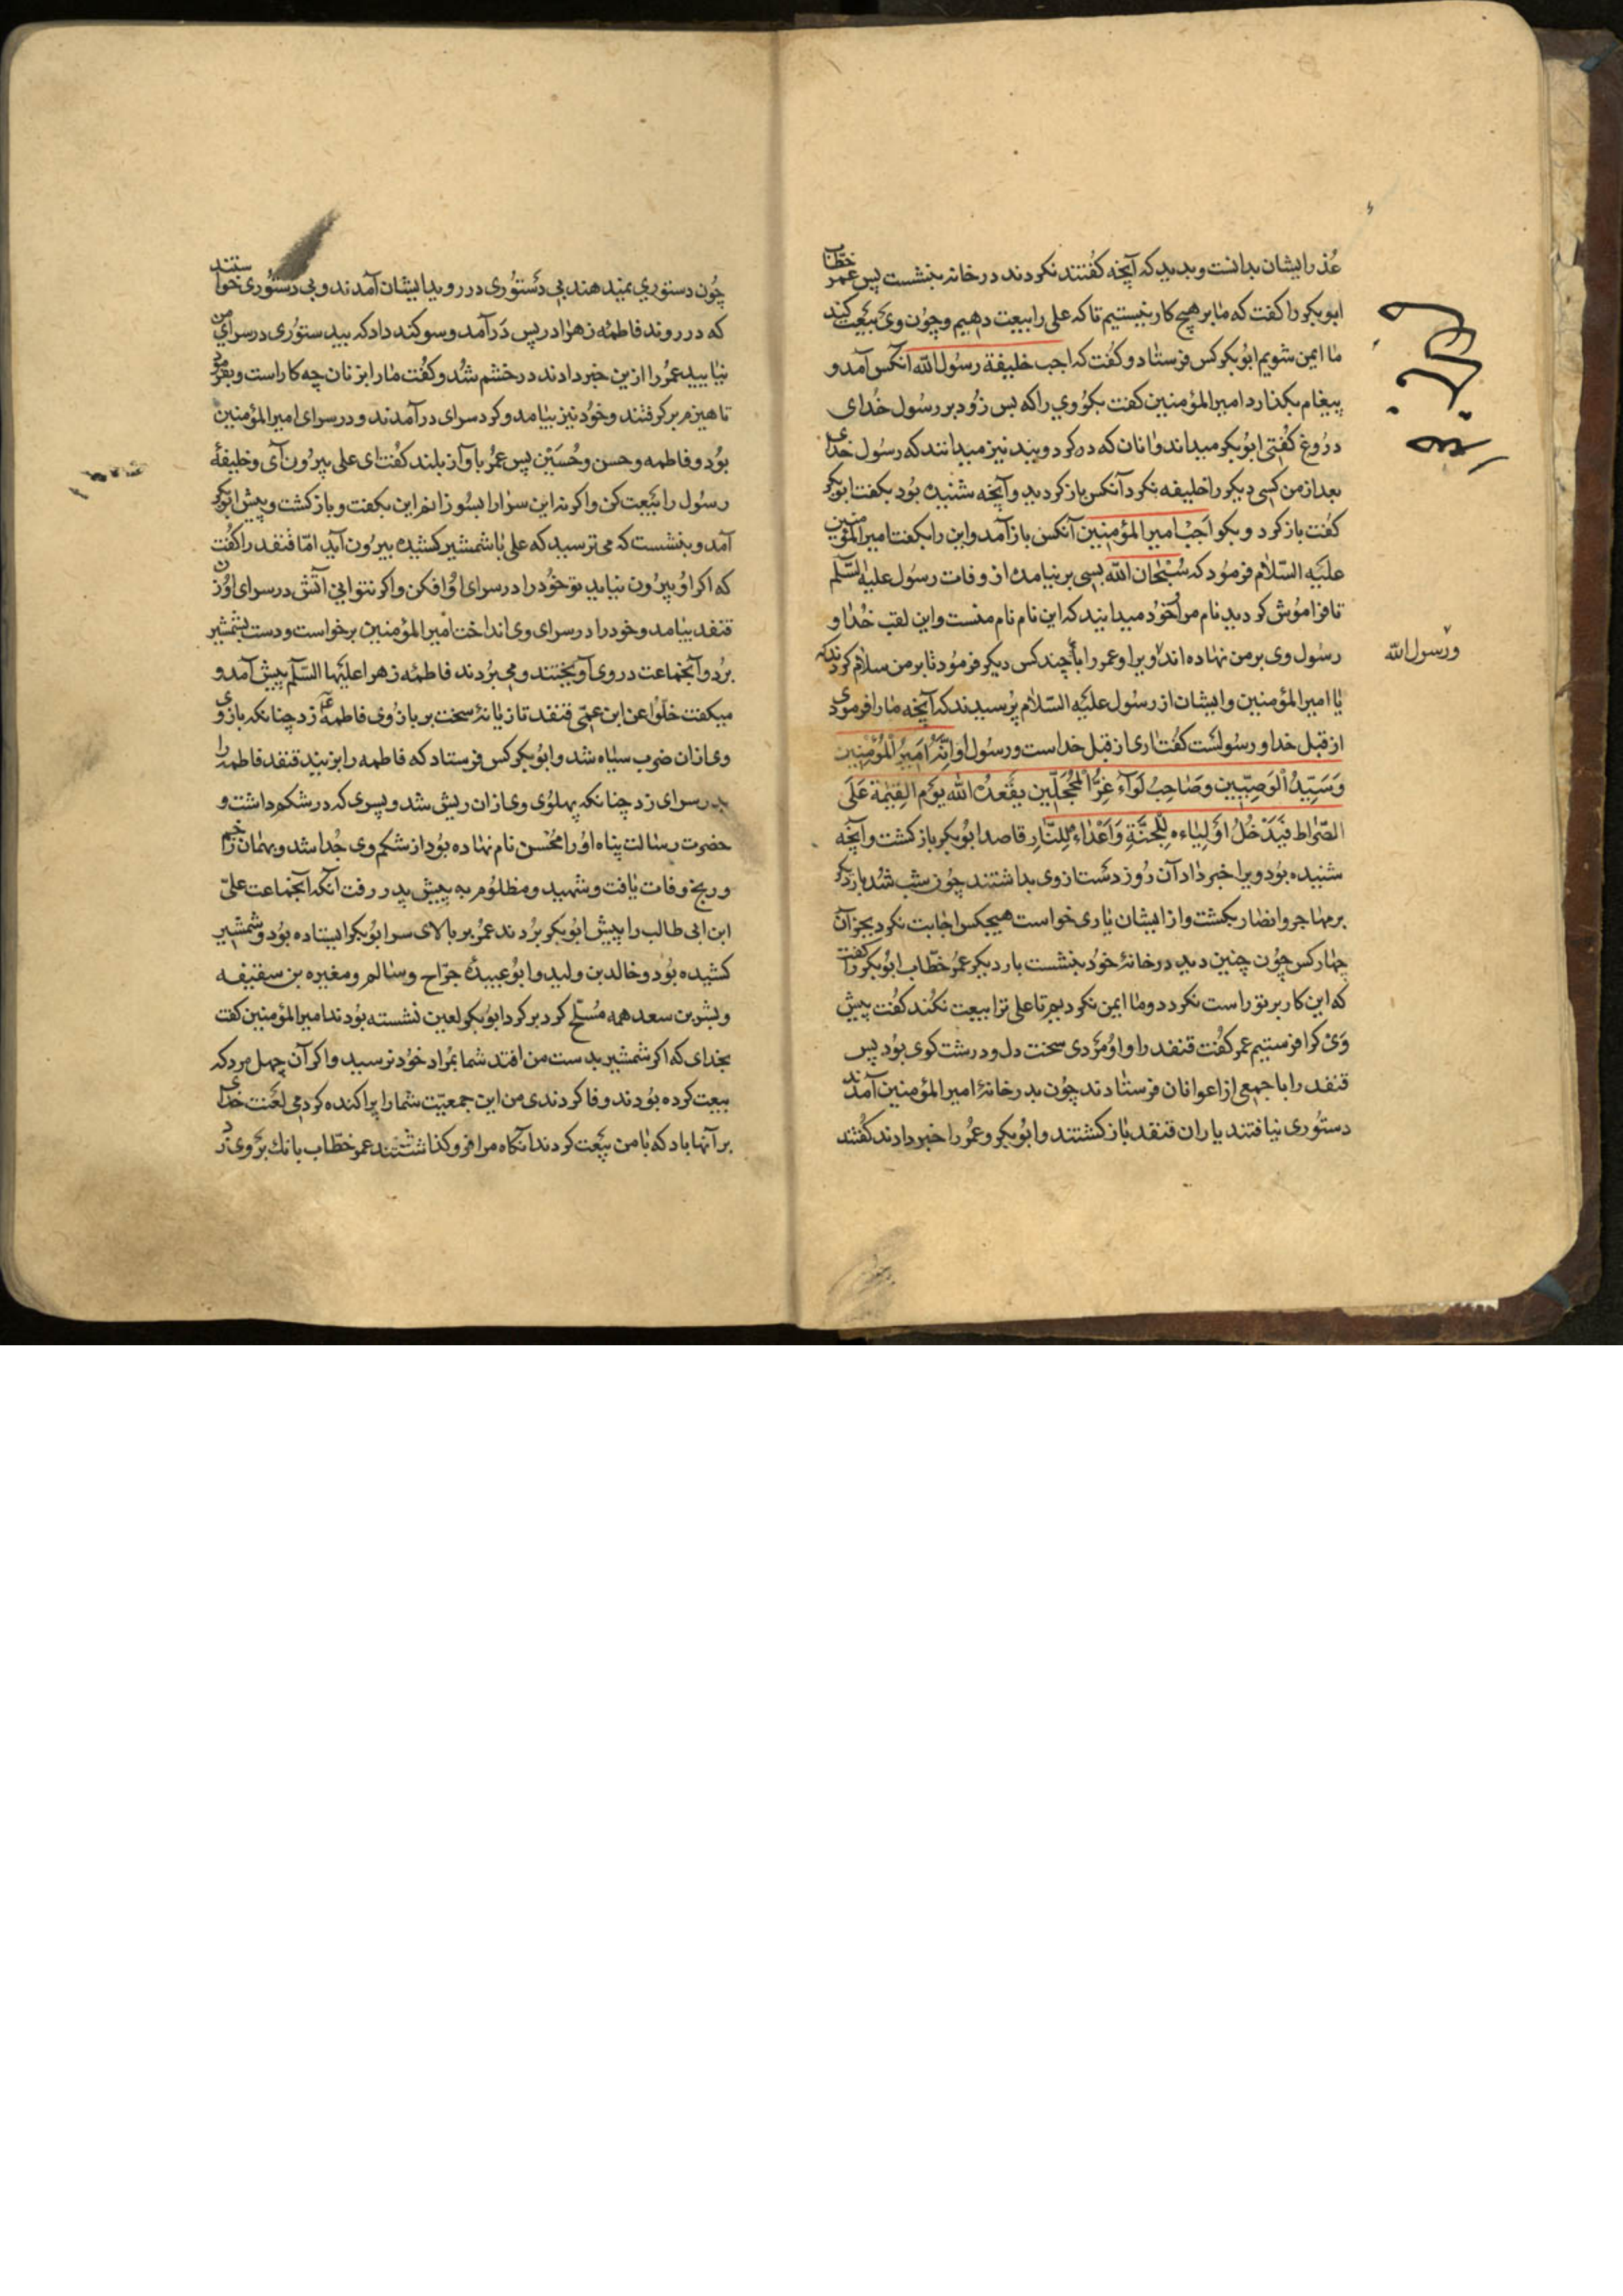 عُذر ایشان بدانست و بدید که آنچه گفتند نکردند در خانه بنشست پس عمر خطاب
ابوبکر را گفت که ما بر هیچ کار نیستیم تا که علی را بیعت دهیم و چون وی بیعت کند
ما ایمن شویم ابوبکر کس فرستاد و گفت که اجب خلیفة رسول الله آنکس آمد و
پیغام بگذارد امیرالمؤمنین گفت بگو وی را که بس زود بر رسول خدای
دروغ گفتی ابوبکر میداند و آنان که در گرد ویند نیز میدانند که رسول خدای
بعد از من کسی دیگر را خلیفه نکرد آنکس باز گردید و آنچه شنیده بود بگفت ابوبکر
گفت باز گرد و بگو اَجِبْ امیر المؤمنین آنکس باز آمد و این را بگفت امیر المؤمنین
علیه السّلام فرمود که سُبْحان الله بسی بر نیامده از وفات رسول علیه السّلم
تا فراموش کردید نام مرا خود میدانید که این نام نام منست و این لقب خدا و
رسول وی بر من نهاده اند و یرا و عمر را با چند کس دیگر فرمود تا بر من سلام کردند که
و رسول الله
یا امیر المؤمنین و ایشان از رسول علیه السّلام پرسیدند که آنچه ما را فرمودی
از قبل خدا و رسولست گفت آری از قبل خداست و رسول او اِنَّهُ اَمِیرُ الْمُؤْمِنِین
وَسَیِّدُ الْوَصِیّین وصَاحِبُ لَوآءِ غِرُّ الْمُحَجَّلِین یقعدُه الله یَوْم القِیٰمة عَلَی
الصّراط فَیَدْخُلُ اَوْلیاءه لِلْجنّةِ وَاَعْداءهُ لِلنّارِ قاصد ابوبکر باز گشت و آنچه
شنیده بود ویرا خبر داد آن روز دست از وی بداشتند چون شب شد بار دیگر
بر مهاجر و انصار بگشت و از ایشان یاری خواست هیچکس اجابت نکرد بجز آن
چهار کس چون چنین دید در خانهٔ خود بنشست بار دیگر عمر خطّاب ابوبکر را گفت
که این کار بر تو راست نگردد و ما ایمن نگردیم تا علی ترا بیعت نکند گفت پیش
وی کرا فرستیم عمر گفت قنفد را و او مردی سخت دل و درشت گوی بود پس
قنفد را با جمعی از اعوانان فرستادند چون بدر خانهٔ امیر المؤمنین آمدند
دستوری نیافتند یاران قنفد باز گشتند و ابوبکر و عمر را خبر دادند گفتند
چون دستوری نمیدهند بی دستوری در روید ایشان آمدند و بی دستوری خواستند
که در روند فاطمهٔ زهرا در پس در آمد و سوگند داد که بیدستوری در سرای من
نیایید عمر را ازین خبر دادند در خشم شد و گفت ما را بر زنان چه کار است و بفرمود
تا هیزم بر گرفتند و خود نیز بیامد و گرد سرای در آمدند و در سرای امیر المؤمنین
بود و فاطمه و حسن و حُسَیْن پس عمر بآواز بلند گفت ای علی بیرون آی و خلیفهٔ
رسول را بیعت کن و اگر نه این سرا را بسوزانم این بگفت و باز گشت و پیش ابوبکر
آمد و بنشست که می ترسید که علی با شمشیر کشیده بیرون آید امّا قنفد را گفت
که اگر او بیرون نیاید تو خود را در سرای او افکن و اگر نتوانی آتش در سرای او زن
قنفد بیامد و خود را در سرای وی انداخت امیر المؤمنین برخواست و دست بشمشیر
برد و آنجماعت در وی آویختند و می بردند فاطمهٔ زهرا علیها السّلم پیش آمد و
میگفت خلّوا عن ابن عمّی قنفد تازیانهٔ سخت بر بازوی فاطمه زد چنانکه بازوی
وی از آن ضرب سیاه شد و ابوبکر کس فرستاد که فاطمه را بزنید قنفد فاطمه را
بدر سرای زد چنانکه پهلوی وی از آن ریش شد و پسری که در شکم داشت و
حضرت رسالت پناه او را محسن نام نهاده بود از شکم وی جدا شد و بهمان زخم
و رنج وفات یافت و شهید و مظلوم به پیش پدر رفت آنگه آنجماعت علیّ
ابن ابی طالب را پیش ابوبکر بردند عمر بر بالای سر ابوبکر ایستاده بود و شمشیر
کشیده بود و خالد بن ولید و ابوعبیدهٔ جرّاح و سالم و مغیره بن سقیفه
و بشر بن سعد همه مُسلّح گرد بر گرد ابوبکر لعین نشسته بودند امیر المؤمنین گفت
بخدای که اگر شمشیر بدست من افتد شما بمراد خود نرسید و اگر آن چهل مرد که
بیعت کرده بودند وفا کردندی من این جمعیّت شما را پراکنده کردمی لعنت خدای
بر آنها باد که با من بیعت کردند آنگاه مرا فرو گذاشتند عمر خطّاب بانک بر وی زد